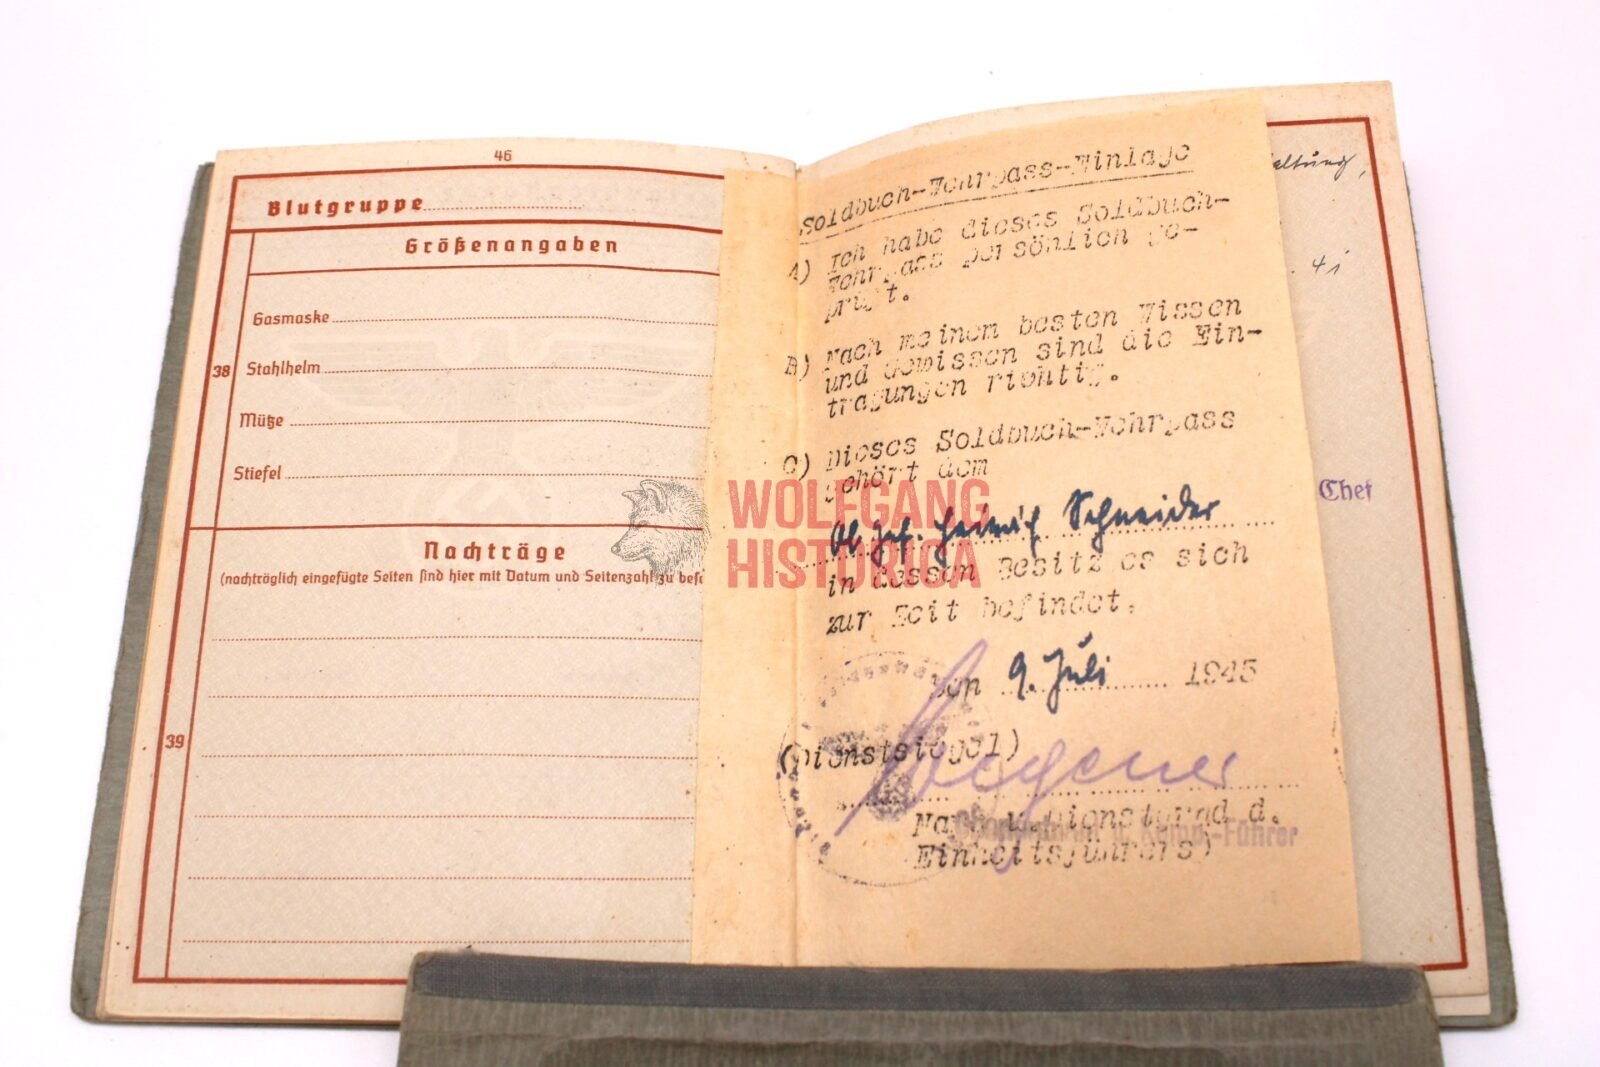 46
Blutgruppe
Größenangaben
Gasmaske
38
Stahlhelm
Mütze
Stiefel
Nachträge
(nachträglich eingefügte Seiten sind hier mit Datum und Seitenzahl zu
39
Soldbuch-Wehrpass-Einlage
A) Ich habe dieses Soldbuch-
Wehrpass persönlich ge-
prüft.
B) Nach meinem besten Wissen
und Gewissen sind die Ein-
tragungen richtig.
C) Dieses Soldbuch-Wehrpass
gehört dem
Ob Gef. Heinrich Schneider
in dessen Besitz es sich
zur Zeit befindet.
den 9. Juli 1945
(Dienstsiegel)
Wegener
Name u. Dienstgrad d.
Einheitsführers)
-Führer
41
Chef
WOLFGANG
HISTORICA